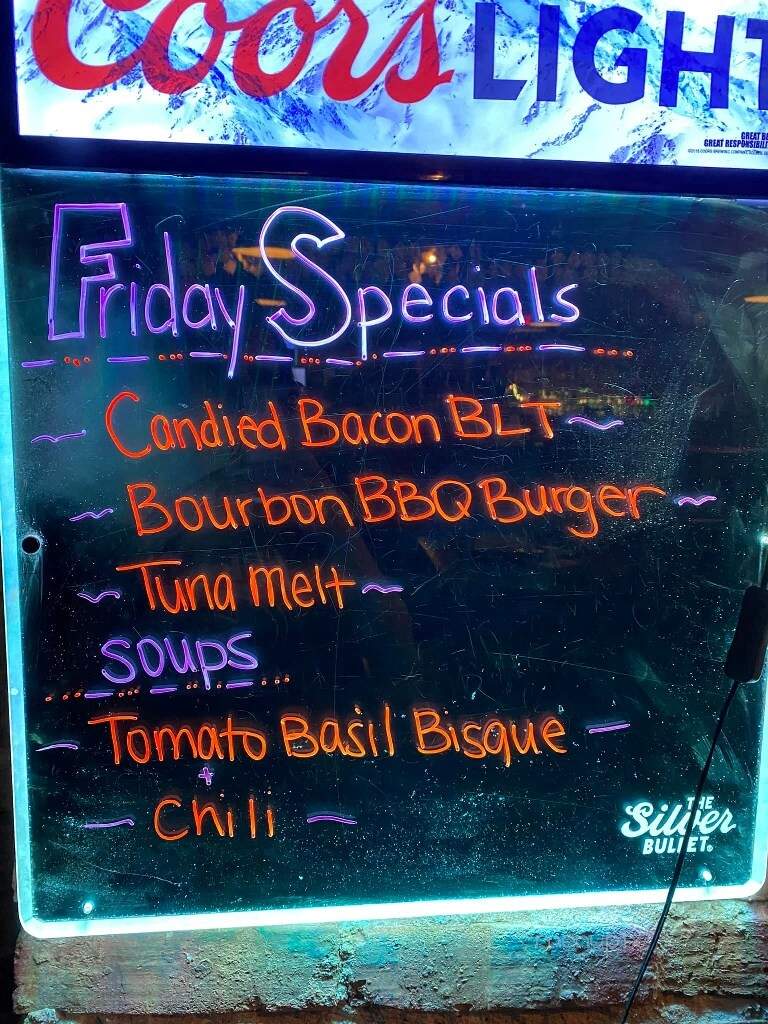 Coors LIGHT
GREAT BE
GREAT RESPONSIBILI
Friday Specials
Candied Bacon BLT
Bourbon BBQ Burger
Tuna Melt
Soups
Tomato Basil Bisque
+
Chili
THE
Silver
BULLET.